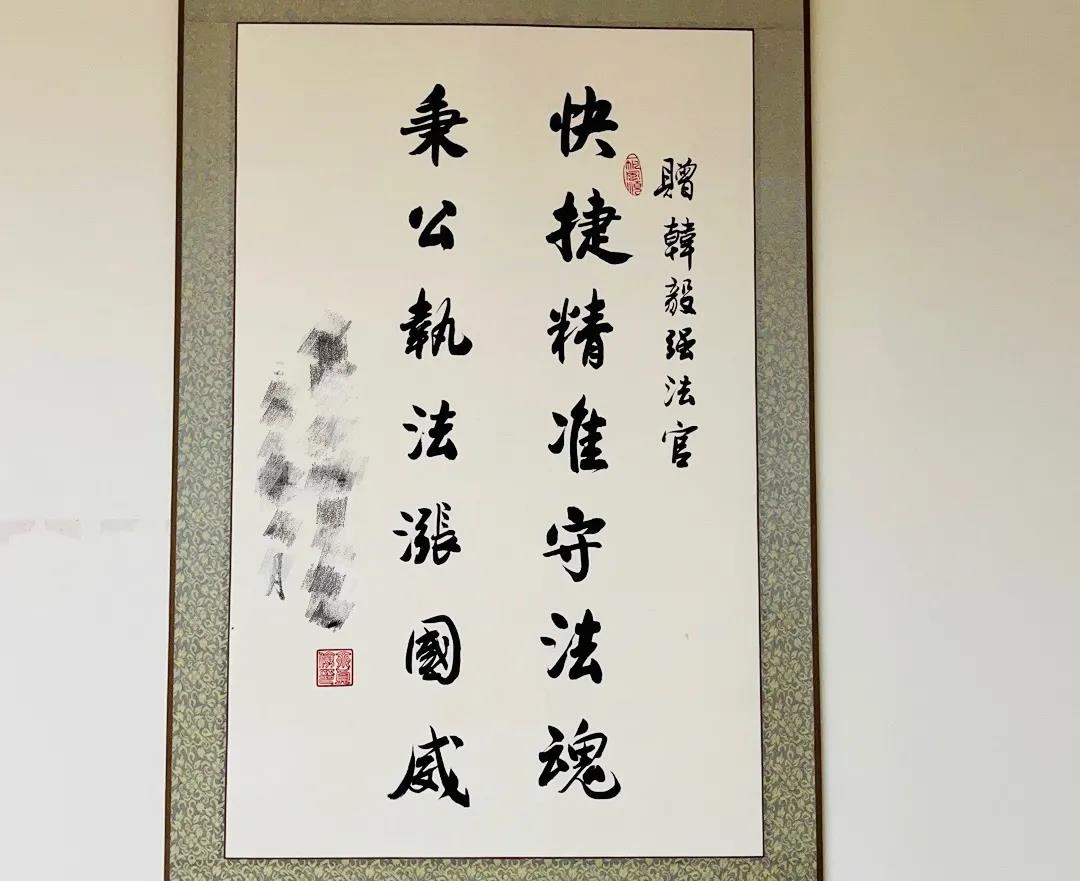 贈韓毅强法官
快捷精准守法魂
秉公執法漲國威
月